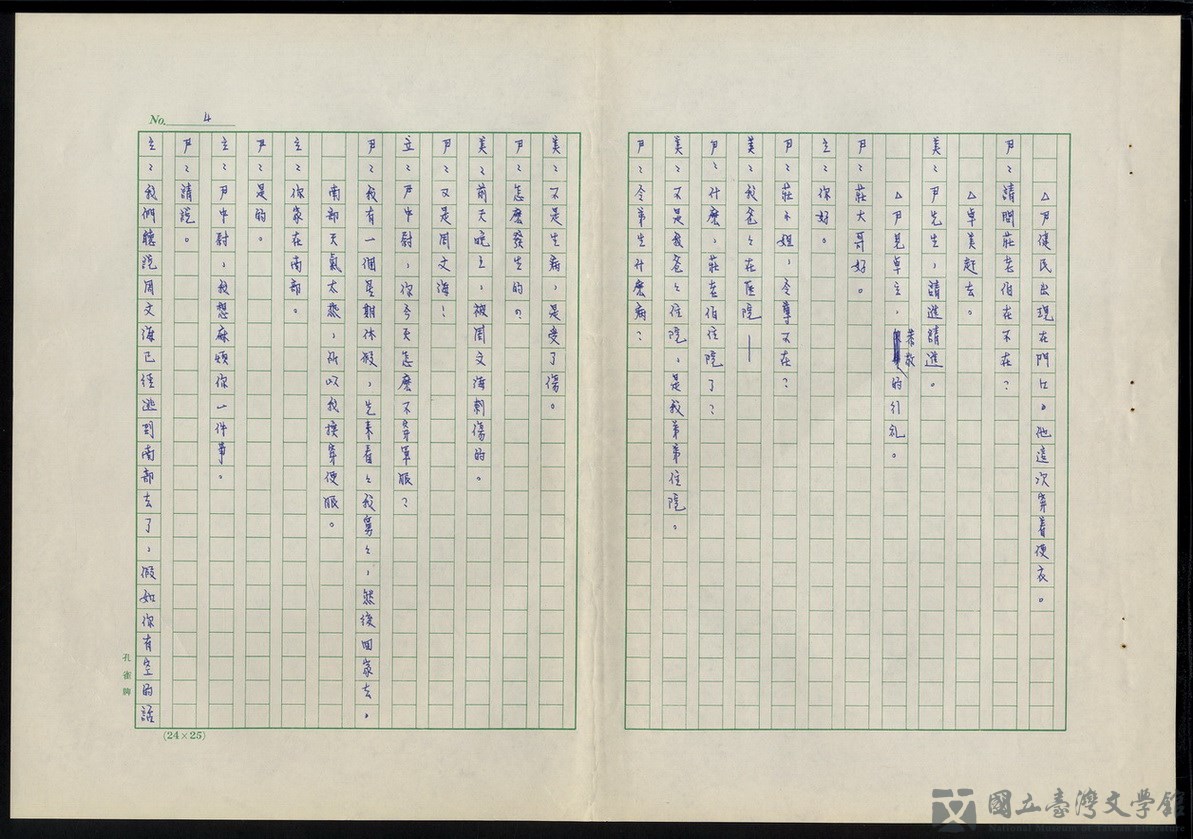 △尹健民出現在門口。他這次穿着便衣。
尹：請問莊老伯在不在？
△卓美赶去。
美：尹先生，請進請進。
△尹見卓立，恭敬的行礼。
尹：莊大哥好。
立：你好。
尹：莊小姐，令尊不在？
美：我爸々在医院——
尹：什麽，莊老伯住院了？
美：不是我爸々住院，是我弟弟住院。
尹：令弟生什麽病？
美：不是生病，是受了傷。
尹：怎麽發生的？
美：前天晚上，被周文海刺傷的。
尹：又是周文海！
立：尹中尉，你今天怎麽不穿軍服？
尹：我有一個星期休假，先來看々我舅々，然後回家去，
南部天氣太热，所以我換穿便服。
立：你家在南部。
尹：是的。
立：尹中尉，我想麻煩你一件事。
尹：請說。
立：我們聽說周文海已經逃到南部去了，假如你有空的話
No. 4
孔雀牌
(24×25)
國立臺灣文學館
National Museum of Taiwan Literature